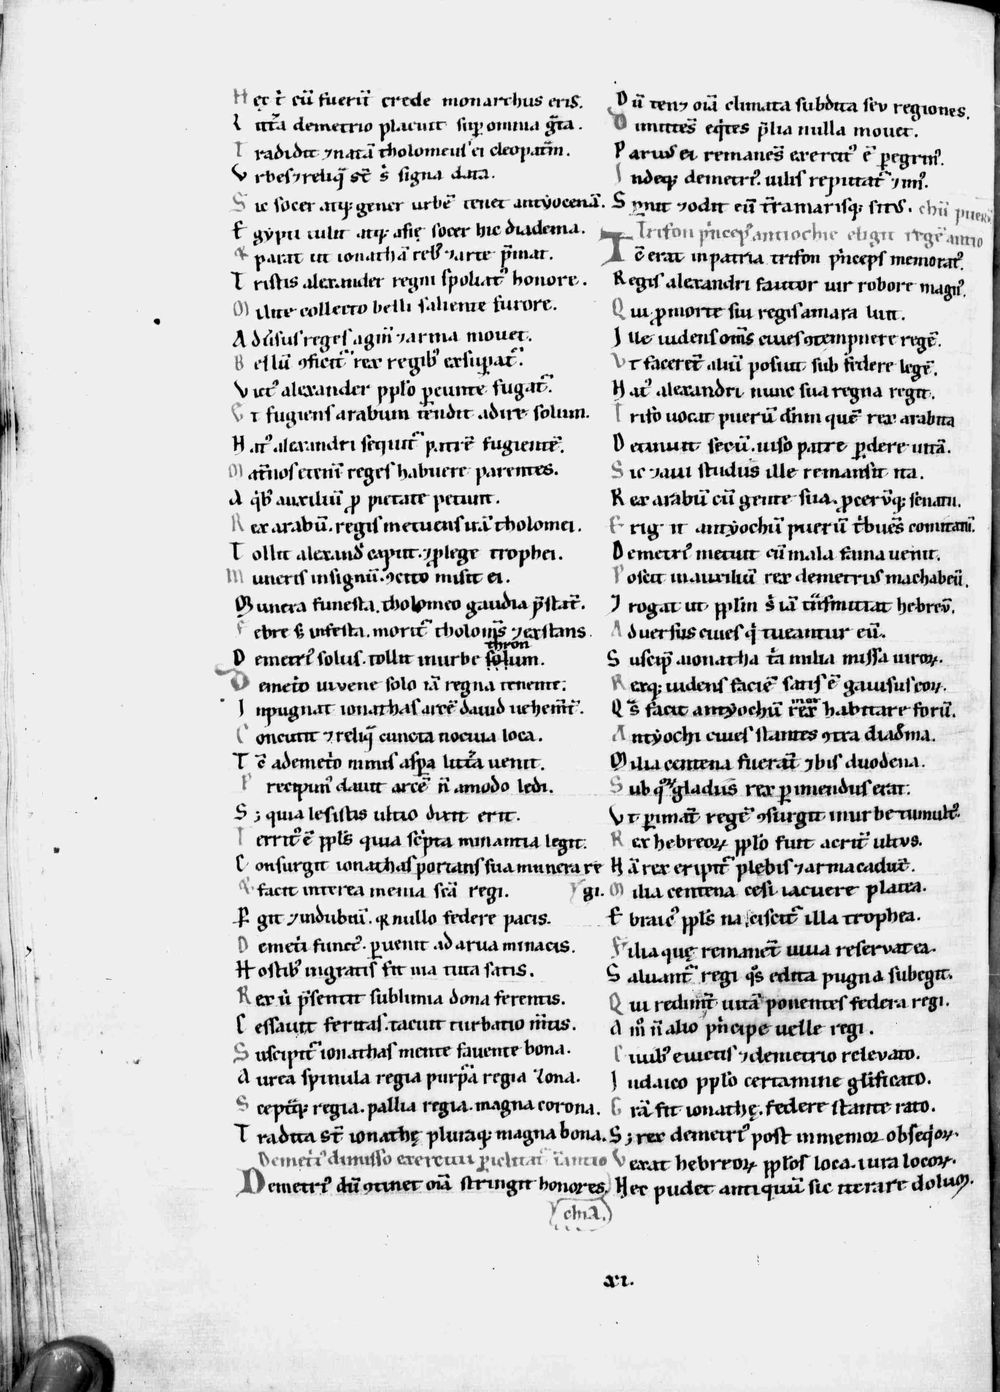 Hęc t̄ cū fuerīt crede monarchus eris.
Litt̄a demetrio placuit sup omnia gr̄a.
Tradidit ⁊natā tholomeus ei cleopatrā.
Vrbes ⁊reliq̄ st̄ s̄ signa data.
Sic socer atq; gener urbē tenet antyocenā.
Egypti tulit atq; asię socer hic diadema.
& parat ut ionathā reb; ⁊arte p̄mat.
Tristis alexander regni spoliat' honore.
Milite collecto belli saliente furore.
Aduersus reges agm̄ ⁊arma mouet.
Bellū ꝯficit' rex regib; exsupat'.
Vict' alexander pplo peunte fugat'.
Et fugiens arabum tendit adire solum.
Hac alexandri sequit' patrē fugientē.
Mat̄nos etenī reges habuere parentes.
A qb; auxiliū p pietate petunt.
Rex arabū. regis metuens irā tholomei.
Tollit alexandr̄ caput. ⁊plege trophei.
Muneris insignū. ⁊cito misit ei.
Munera funesta. tholomeo gaudia p̄stat.
Febre s; infesta. morit' tholomeus ⁊exstans
thron
Demetri' solus. tollit inurbe solum.
Demetrio iuuene solo iā regna tenente:
Inpugnat ionathas arcē dauid uehem̄t'.
Concutit ⁊ reliq̄ cuncta nociua loca.
Tc̄ ademetrio nimis asp̄a litt̄a uenit.
Precipim' dauit arcē n̄ amodo ledi.
S; quia lesistis ultio dixit erit.
Territ' ē ppls quia sc̄pta minantia legit:
Consurgit ionathas portans sua munera re
& facit interea menia sc̄a regi. gi.
Pgit ⁊indubitū. q nullo federe pacis.
Demetri funct'. puenit ad arua minacis.
Hostib; ingratis fit uia tuta satis.
Rex ū p̄sentit sublimia dona ferentis.
Cessauit feritas. tacuit turbatio m̄tis.
Suscipit' ionathas mente fauente bona.
Aurea spinula regia purp̄a regia zona.
Sceptq; regia. pallia regia. magna corona.
Tradita st̄ ionathę pluraq; magna bona.
Demetri' dimisso exercitu piclitat' ī antio
Demetri' dū ꝯtinet oīa stringit honores.
chia.
Dū tenꝫ oīa climata subdita seu regiones.
Dimittēs eq̄tes p̄lia nulla mouet.
Paruus ei remanes exercit' ē pegrin'.
Indeq; demetri'. uilis reputat' ⁊im'.
Spnit ⁊odit eū t̄ramarisq; situs. chiī pueru
Trifon p̄nceps antiochie eligit regē antio
Tc̄ erat inpatria trifon p̄nceps memorat'.
Regis alexandri fautor uir robore magn'.
Qui p morte sui regis amara luit.
Ille uidens om̄s ciues ꝯtempnere regē.
Vt faceret aliū posuit sub federe legē.
Hac alexandri nunc sua regna regit.
Trifō uocat puerū dn̄m quē rex arabita
Detinuit secū. uiso patre pdere uitā.
Sic ⁊aui studiis ille remansit ita.
Rex arabū cū gente sua. pcerūq; senatu.
Erigit antyochū puerū t̄buēs comitatū.
Demetri' metuit cū mala fama uenit.
Poscit inauxiliū rex demetrius machabeū.
Irogat ut pplm s̄ iā t̄nsmittat hebreū.
Aduersus ciues q̄ tueantur eū.
Suscip̄ aionatha t̄a milia missa uiroꝝ.
Rexq; uidens faciē satis ē gauisus eoꝝ.
Q̄s facit antyochū rex habitare forū.
Antyochi ciues stantes ꝯtra diadēma.
Milia centena fuerāt ⁊bis duodena.
Sub qr̄ gladiis rex pimendus erat:
Vt pimat̄ regē ꝯsurgit inurbe tumult'.
Rex hebreoꝝ pplo fuit acrit' ultus.
Hā rex eripit' plebis ⁊arma caduēt.
Milia centena cesi iacuere platea.
Ebraic' ppls nanciscit' illa trophea.
Filia quę remanēt uiua reseruatea.
Saluant' regi q̄s edita pugna subegit.
Qui redimūt uitā ponentes federa regi.
Am̄ n̄ alio p̄ncipe uelle regi.
Ciuib; euictis ⁊demetrio releuato.
Iudaico pplo certamine glificato.
Gr̄a fit ionathę. federe stante rato.
S; rex demetri' post inmemor obseq̄oꝝ.
Vexat hebreoꝝ pplos loca. iura locoꝝ.
Hec pudet antiquū sic iterare dolum.
xi.